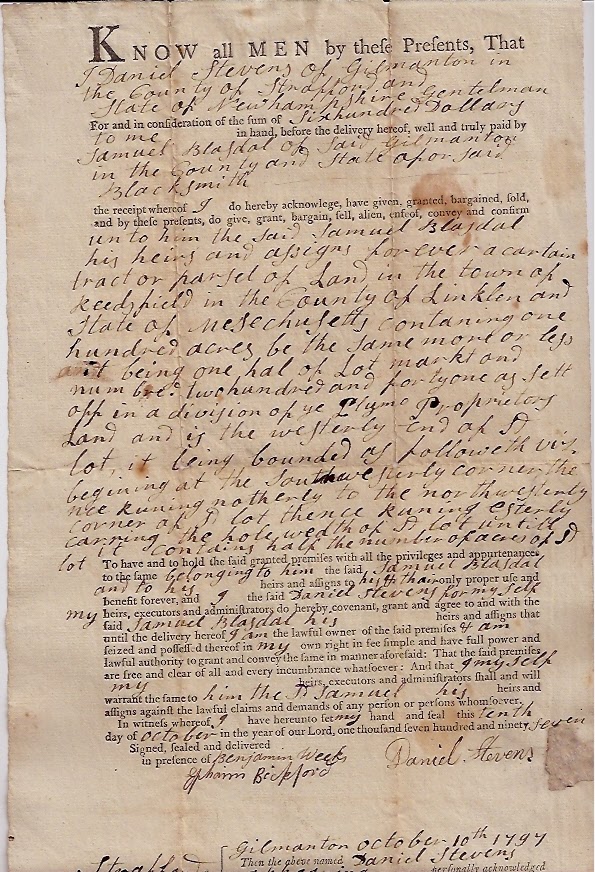 KNOW all MEN by theſe Preſents, That
I Daniel Stevens of Gilmanton in
the County of Strafford and
State of Newhampshire Gentelman
For and in conſideration of the ſum of Sixhundred Dollars
to me in hand, before the delivery hereof, well and truly paid by
Samuel Blasdal of Said Gilmanton
in the County and State afor Said
Blacksmith
the receipt whereof I do hereby acknowlege, have given, granted, bargained, ſold,
and by theſe preſents, do give, grant, bargain, ſell, alien, enfeof, convey and confirm
unto him the Said Samuel Blasdal
his heirs and assigns forever a cartain
tract or parsel of Land in the town of
Reedsfield in the County of Linklen and
State of Mesechusetts contaning one
hundred acres be the same more or less
it being one hal of Lot markt and
numbred twohundred and fortyone as sett
off in a division of ye Plyme Proprietors
Land and is the westerly End of Sd
lot, it being bounded as followeth viz
begining at the Southwesterly corner the
nce runing notherly to the northwesterly
corner of Sd lot thence runing Esterly
carring the hole wedth of Sd lot untill
lot it contains half the number of acres of Sd
To have and to hold the ſaid granted premiſes with all the privileges and appurtenances
to the ſame belonging to him the ſaid Samuel Blasdal
and to his heirs and aſſigns to his & thar only proper uſe and
benefit forever, and I the ſaid Daniel Stevens for my Self
my heirs, executors and adminiſtrators do hereby covenant, grant and agree to and with the
ſaid Samuel Blasdal his heirs and aſſigns that
until the delivery hereof I am the lawful owner of the ſaid premiſes & am
ſeized and poſſeſſed thereof in my own right in fee ſimple and have full power and
lawful authority to grant and convey the ſame in manner aforeſaid: That the ſaid premiſes
are free and clear of all and every incumbrance whatſoever: And that I my Self
my heirs, executors and adminiſtrators ſhall and will
warrant the ſame to him the Sd Samuel his heirs and
aſſigns againſt the lawful claims and demands of any perſon or perſons whomſoever.
In witneſs whereof I have hereunto ſet my hand and ſeal this tenth
day of october in the year of our Lord, one thouſand ſeven hundred and ninety Seven
Signed, ſealed and delivered
in preſence of Benjamin Weeks
Daniel Stevens
Ephraim Bickford
Gilmanton october 10th 1797
Strafford Then the above named Daniel Stevens
perſonally acknowledged